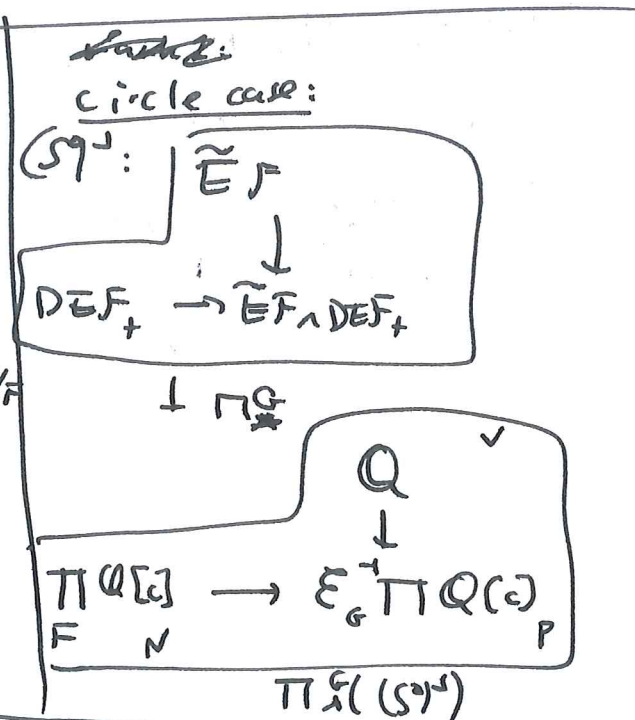 circle case:
(S⁰)ᴶ: ẼF
↓
DEF₊ → ẼF∧DEF₊
↓ π^G_*
Q ✓
↓
∏ Q[c] → ℰ_G⁻¹ ∏ Q(c)
F N P
π^G_*((S⁰)ᴶ)